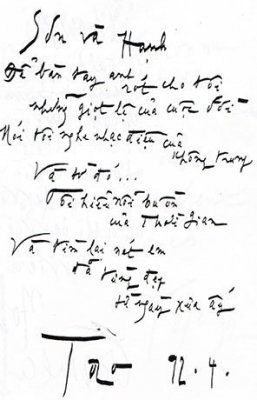 Sơn và Hạnh
Để bàn tay anh rót cho tôi
những giọt lệ của cuộc đời
Nói tôi nghe nhạc điệu của
không trung
Và từ đó...
Tôi hiểu nỗi buồn
của Thời gian
Và tìm lại nét em
đã từng đẹp
từ ngày xưa ấy
92.4.